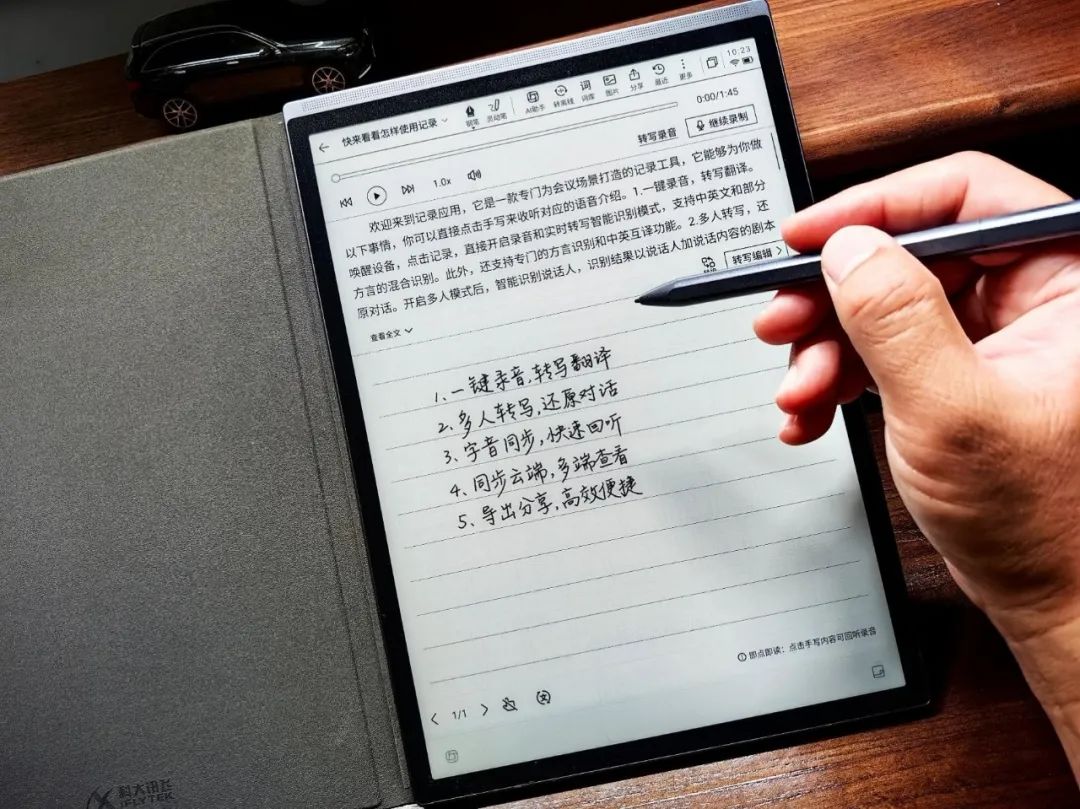 10:23
快来看看怎样使用记录
钢笔 灵动笔 AI助手 转离线 词库 图片 分享 最近 更多
0:00/1:45
1.0x
转写录音 继续录制
欢迎来到记录应用，它是一款专门为会议场景打造的记录工具，它能够为你做
以下事情，你可以直接点击手写来收听对应的语音介绍。1.一键录音，转写翻译。
唤醒设备，点击记录，直接开启录音和实时转写智能识别模式，支持中英文和部分
方言的混合识别。此外，还支持专门的方言识别和中英互译功能。2.多人转写，还
原对话。开启多人模式后，智能识别说话人，识别结果以说话人加说话内容的剧本
转写编辑
查看全文
1、一键录音,转写翻译
2、多人转写,还原对话
3、字音同步,快速回听
4、同步云端,多端查看
5、导出分享,高效便捷
即点即读：点击手写内容可回听录音
1/1
科大讯飞
iFLYTEK